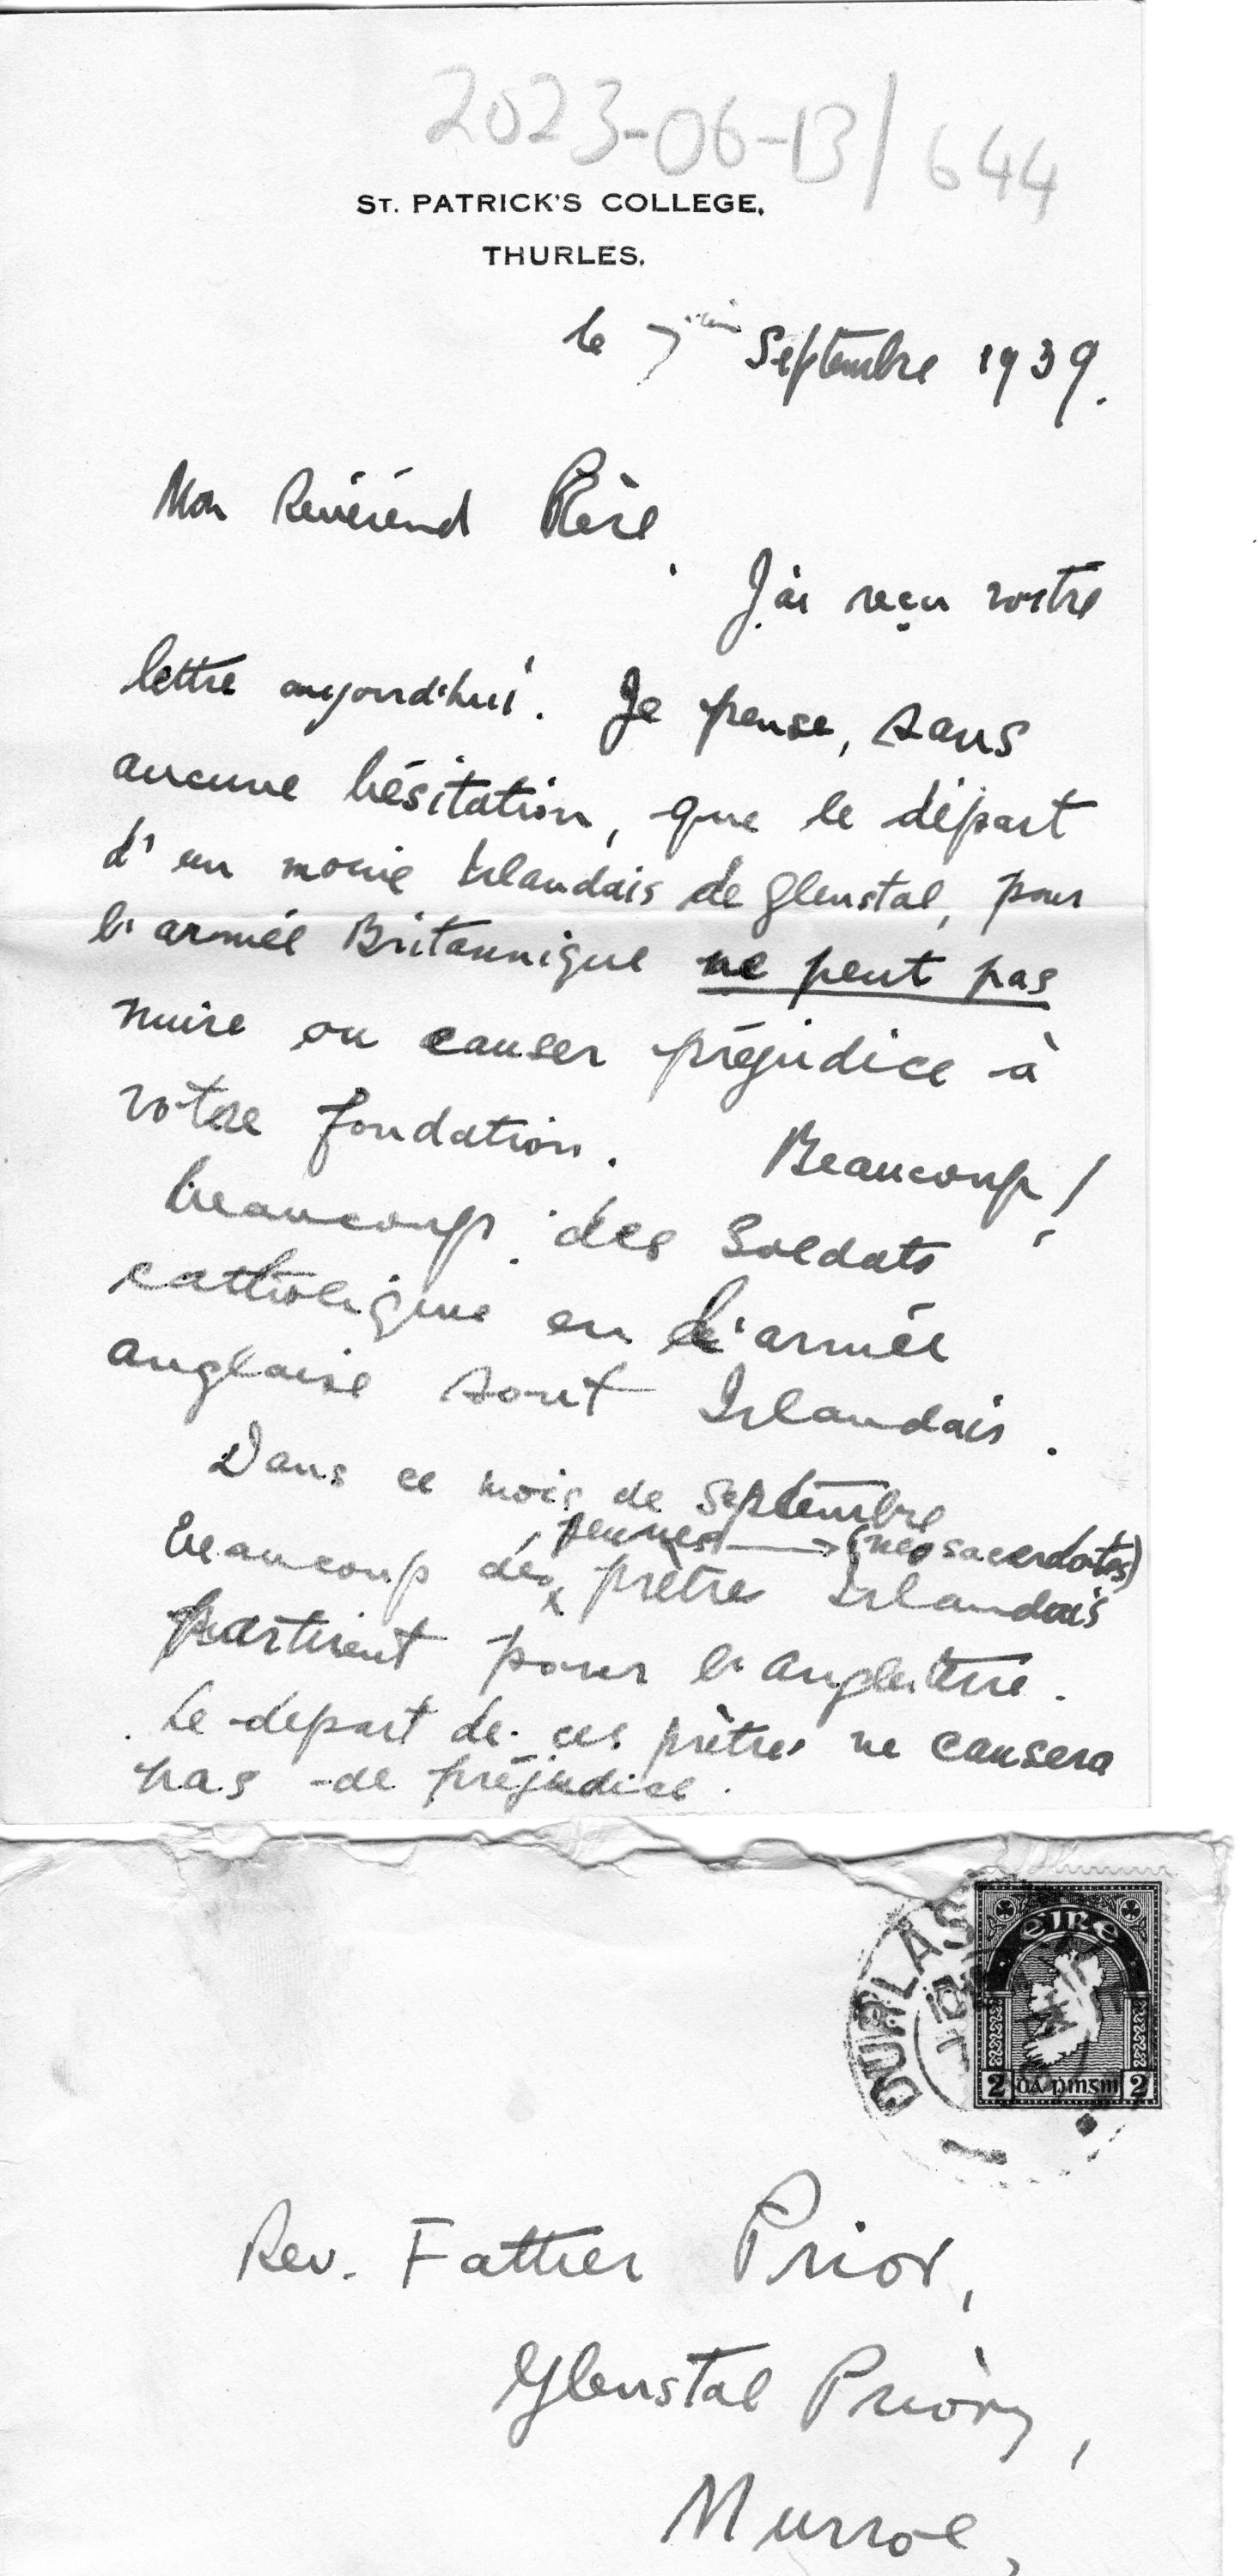 2023-06-13/644
ST. PATRICK'S COLLEGE,
THURLES.
le 7ième Septembre 1939.
Mon Révérénd Père
J'ai reçu votre
lettre aujourd'hui. Je pense, sans
aucune hésitation, que le départ
d'un moine Irlandais de Glenstal, pour
l'armée Britannique ne peut pas
nuire ou causer préjudice à
votre fondation. Beaucoup!
beaucoup des soldats
catholique en l'armée
anglaise sont Irlandais.
Dans ce mois de Septembre
jeunes (neosacerdotes)
beaucoup des prètres Irlandais
partirent pour l'angleterre.
Le depart de ces prètres ne causera
pas de préjudice.
DURLAS
EIRE
2 DÁ PINGIN 2
Rev. Father Prior,
Glenstal Priory,
Murroe,